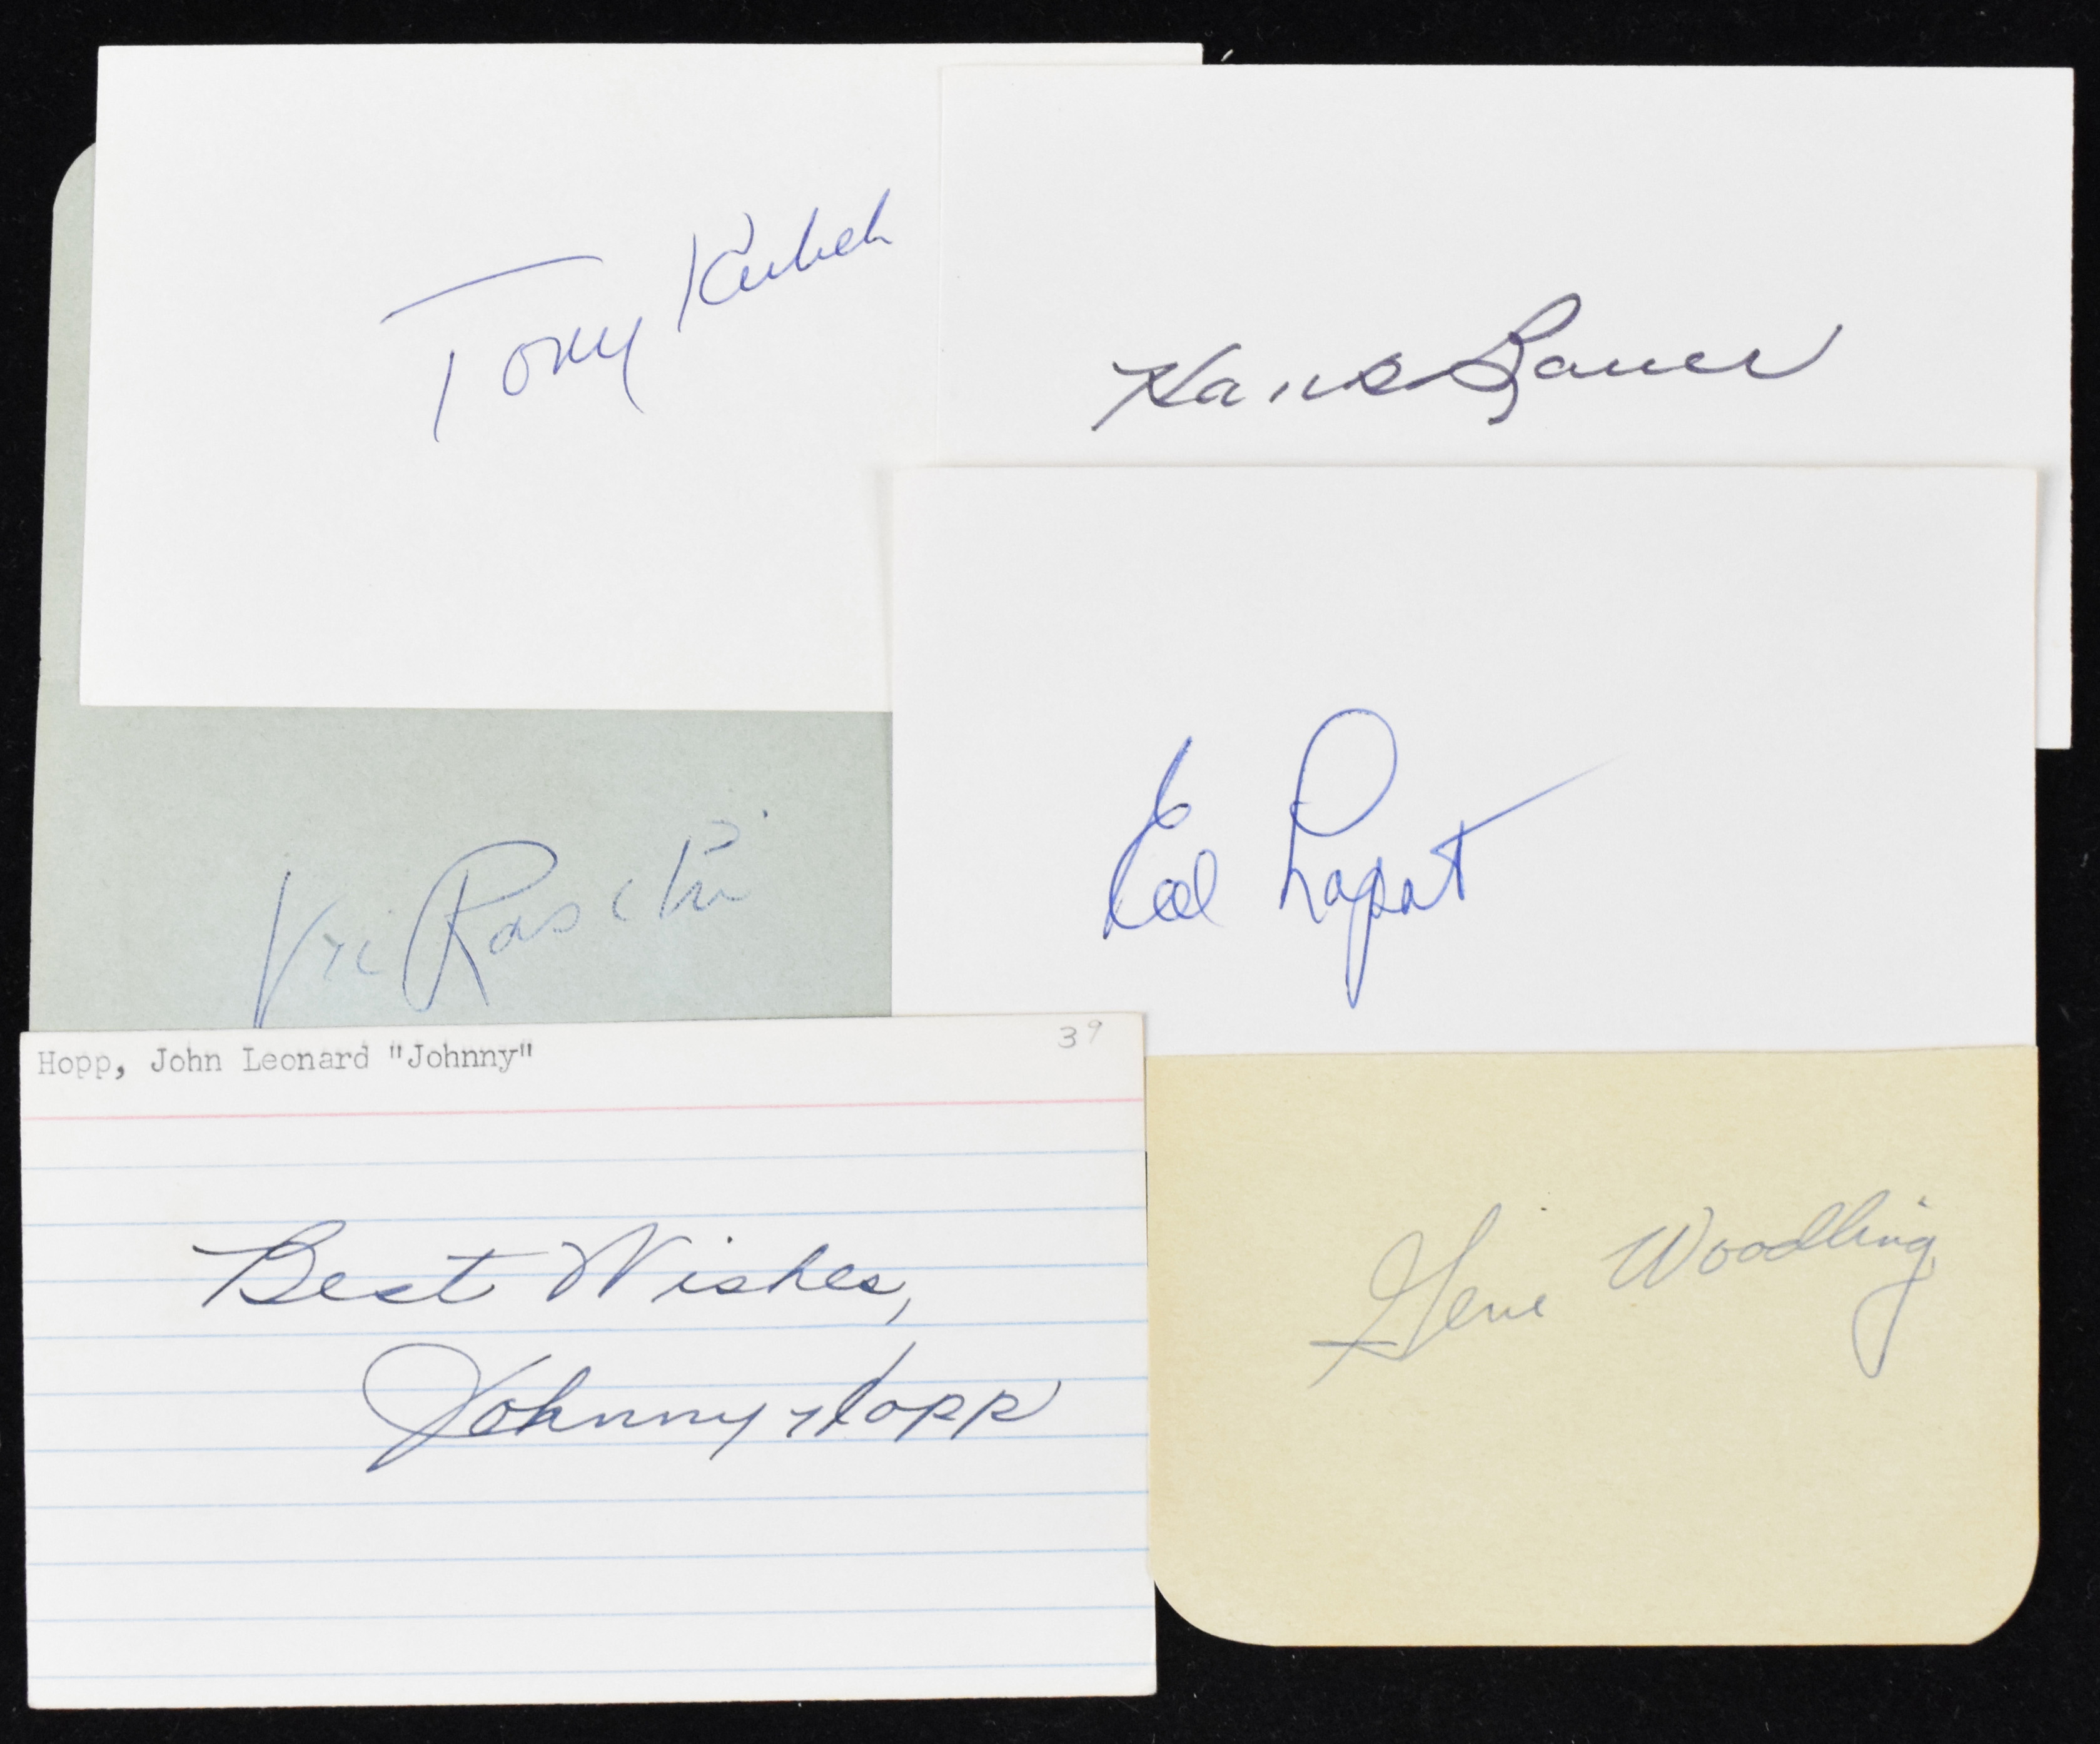 Tony Kubek
Hank Bauer
Vic Raschi
Ed Lopat
Hopp, John Leonard "Johnny"
39
Best Wishes,
Johnny Hopp
Gene Woodling